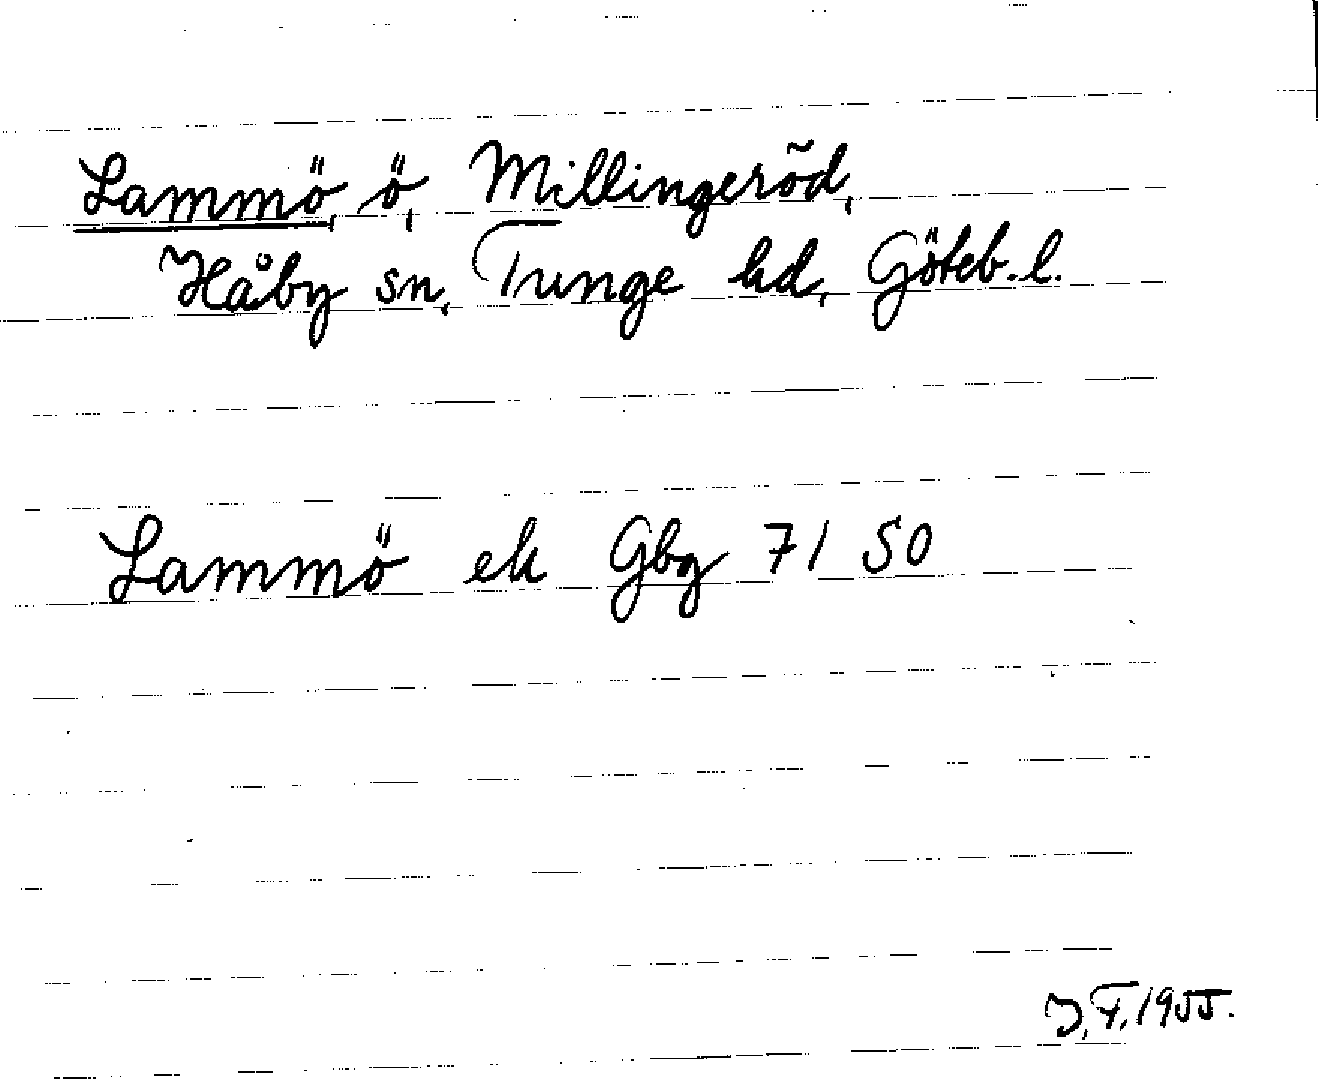 Lammö, ö, Millingeröd,
Håby sn, Tunge hd, Göteb. l.
Lammö ek Gbg 71 50
1955.